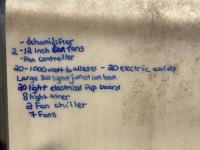 - dehumidifier
2 - 12 inch can fans
- fan controller
20 - 1000 watt ballasts - 20 electric cords
Large 30 light junction box
20 light electrical flip board
8 light timer
2 Fan chiller
7 Fans